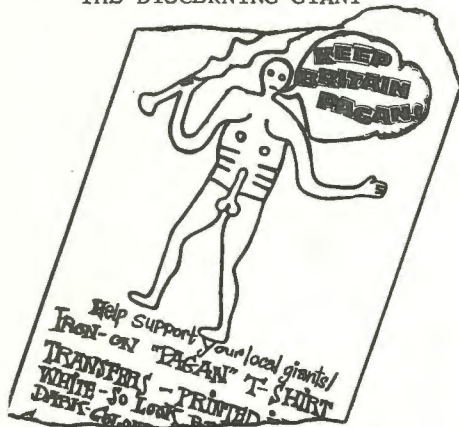 THE DISCERNING GIANT
KEEP
BRITAIN
PAGAN!
Help support your local giants!
IRON-ON "PAGAN" T-SHIRT
TRANSFERS - PRINTED
WHITE - SO LOOK
DARK